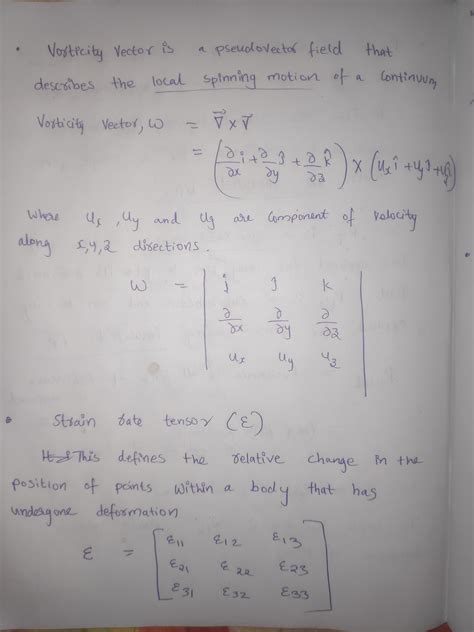 • Vorticity Vector is a pseudovector field that
describes the local spinning motion of a continuum,
Vorticity Vector, ω = ∇⃗ × V⃗
= (∂/∂x î + ∂/∂y ĵ + ∂/∂z k̂) × (uₓ î + u_y ĵ + u_z k̂)
Where uₓ, u_y and u_z are component of velocity
along x, y, z directions.
ω = | î ĵ k |
| ∂/∂x ∂/∂y ∂/∂z |
| uₓ u_y u_z |
• Strain rate tensor (ε)
This defines the relative change in the
position of points within a body that has
undergone deformation
ε = [ ε11 ε12 ε13
ε21 ε22 ε23
ε31 ε32 ε33 ]